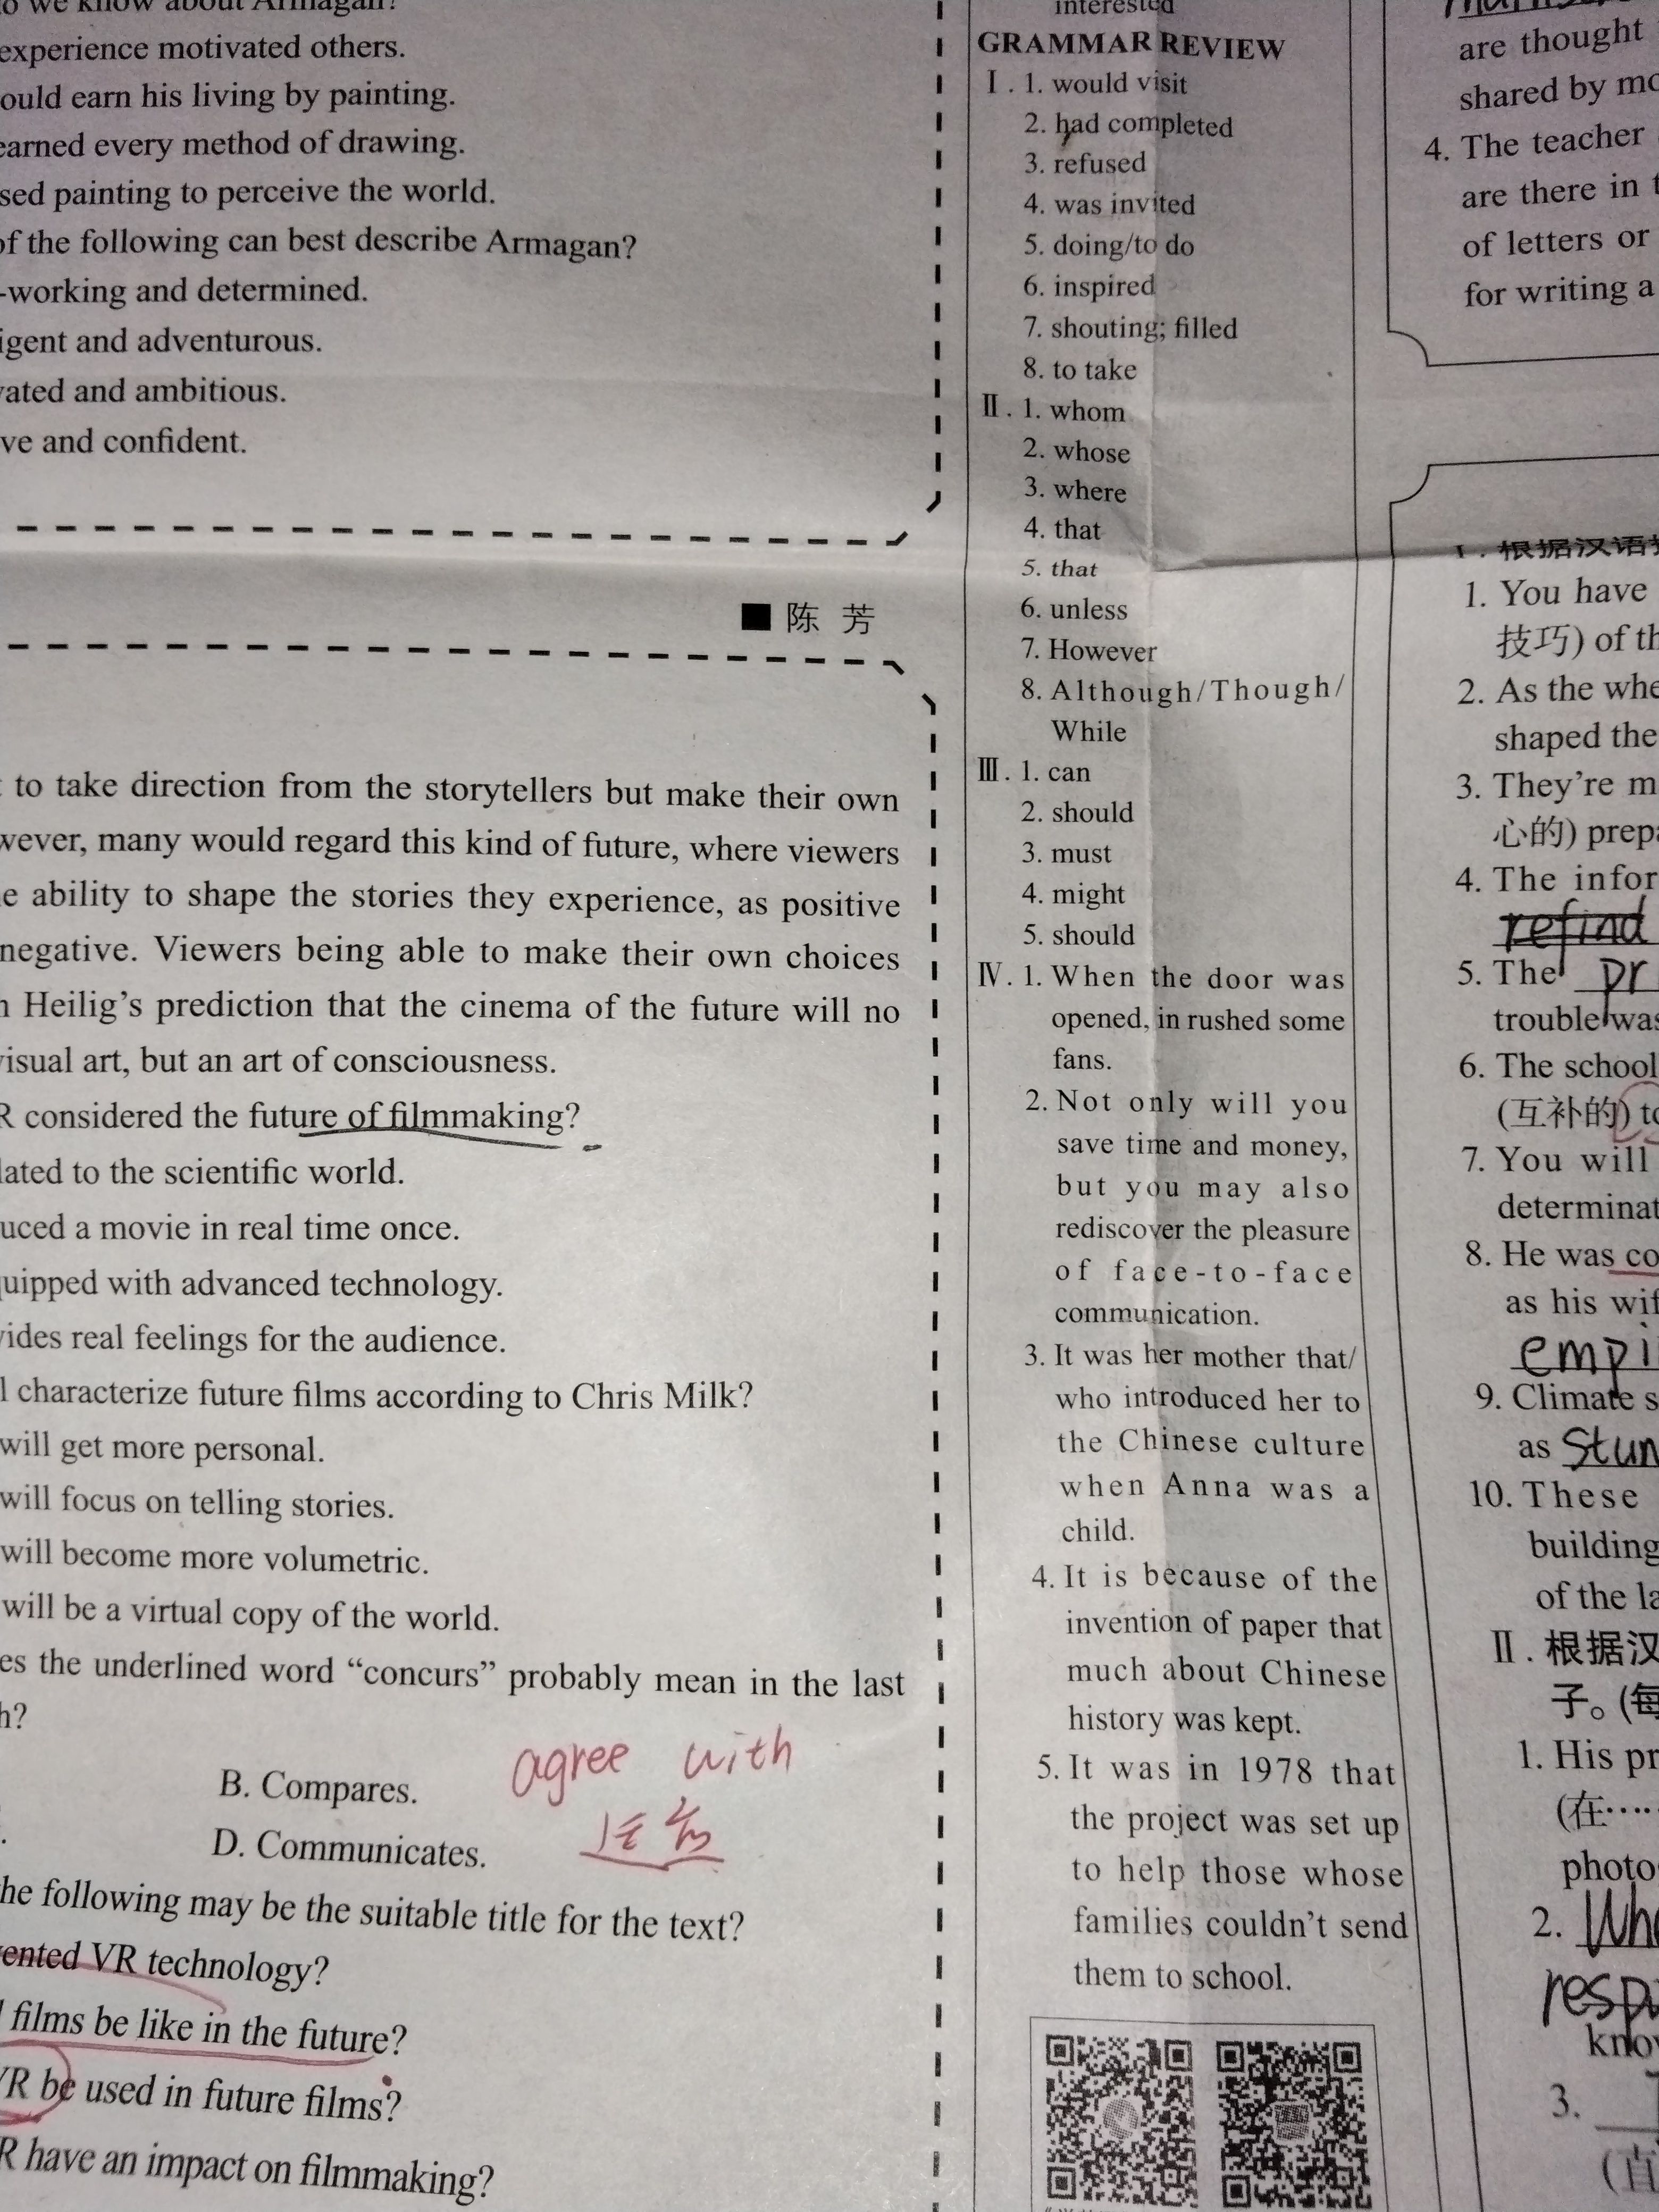 we know about Armagan?
experience motivated others.
ould earn his living by painting.
earned every method of drawing.
sed painting to perceive the world.
of the following can best describe Armagan?
-working and determined.
igent and adventurous.
vated and ambitious.
ve and confident.
■ 陈 芳
to take direction from the storytellers but make their own
wever, many would regard this kind of future, where viewers
e ability to shape the stories they experience, as positive
negative. Viewers being able to make their own choices
n Heilig's prediction that the cinema of the future will no
visual art, but an art of consciousness.
R considered the future of filmmaking?
lated to the scientific world.
uced a movie in real time once.
quipped with advanced technology.
vides real feelings for the audience.
l characterize future films according to Chris Milk?
will get more personal.
will focus on telling stories.
will become more volumetric.
will be a virtual copy of the world.
es the underlined word “concurs” probably mean in the last
h?
agree with
B. Compares.
D. Communicates.
he following may be the suitable title for the text?
ented VR technology?
l films be like in the future?
VR be used in future films?
R have an impact on filmmaking?
interested
GRAMMAR REVIEW
Ⅰ. 1. would visit
2. had completed
3. refused
4. was invited
5. doing/to do
6. inspired
7. shouting; filled
8. to take
Ⅱ. 1. whom
2. whose
3. where
4. that
5. that
6. unless
7. However
8. Although/Though/
While
Ⅲ. 1. can
2. should
3. must
4. might
5. should
Ⅳ. 1. When the door was
opened, in rushed some
fans.
2. Not only will you
save time and money,
but you may also
rediscover the pleasure
of face-to-face
communication.
3. It was her mother that/
who introduced her to
the Chinese culture
when Anna was a
child.
4. It is because of the
invention of paper that
much about Chinese
history was kept.
5. It was in 1978 that
the project was set up
to help those whose
families couldn't send
them to school.
are thought
shared by mo
4. The teacher
are there in t
of letters or
for writing a
Ⅰ. 根据汉语
1. You have
技巧) of th
2. As the whe
shaped the
3. They're m
心的) prepa
4. The infor
refind
5. The pr
trouble was
6. The school
(互补的) to
7. You will
determinat
8. He was co
as his wif
empi
9. Climate s
as stun
10. These
building
of the la
Ⅱ. 根据汉
子。(每
1. His pr
(在……
photo
2. Who
resp
know
3.
(直